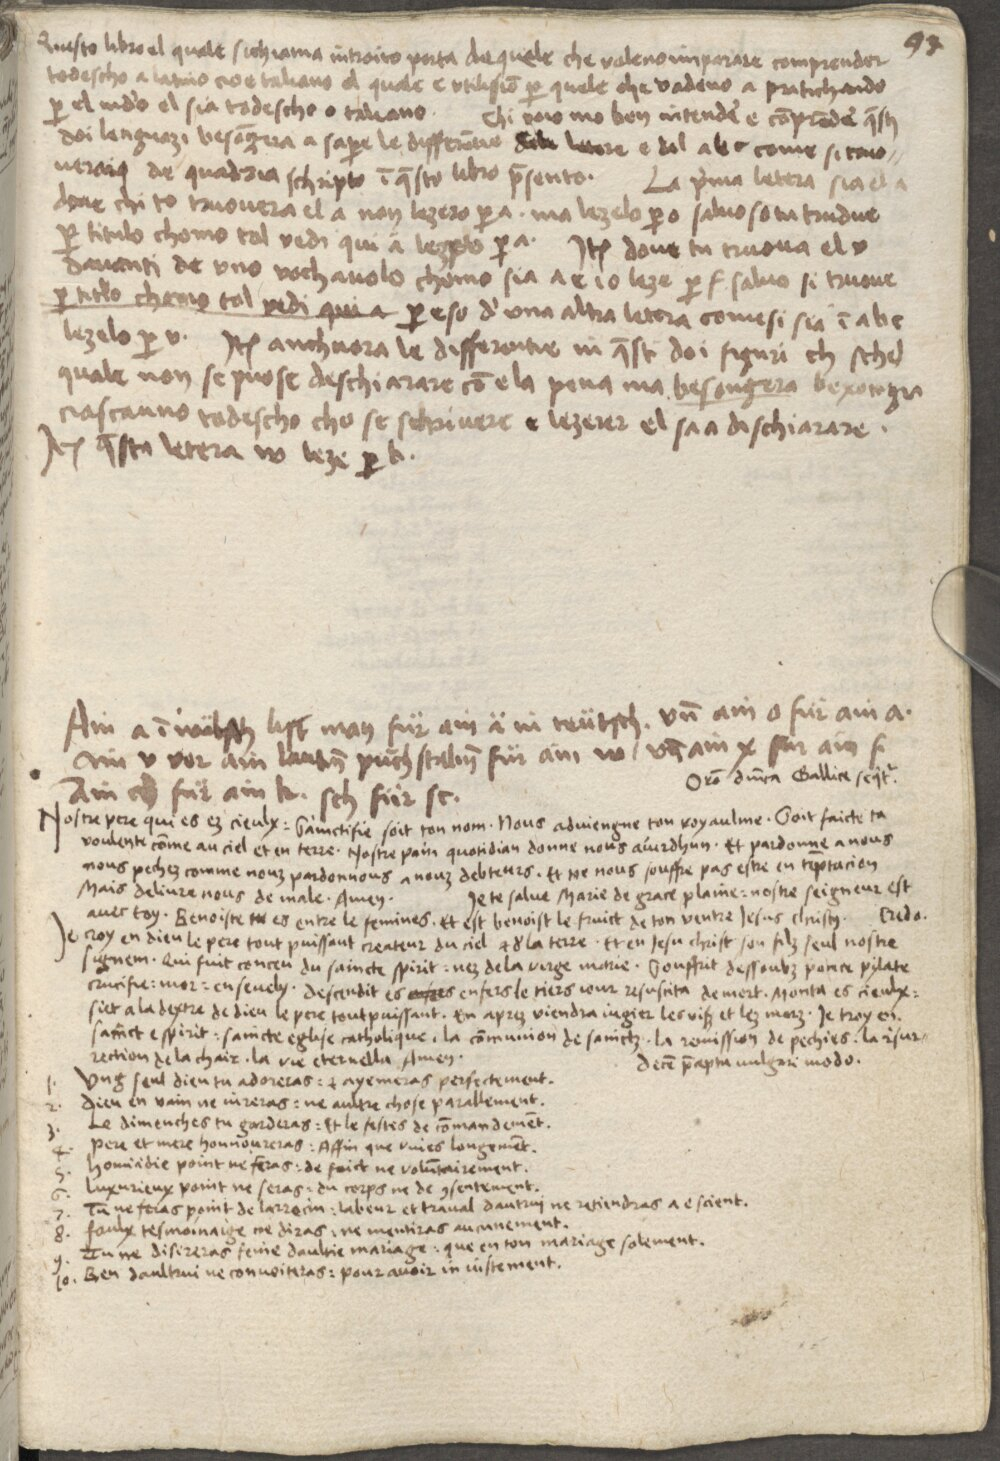 93
Questo libro el quale si chiama introito porta de quele che voleno imparare comprender
todescho a latino cioe taliano el quale e utilisiō p quele che vadeno a pratichando
p el mdō el sia todescho o taliano. Chi voio mo ben intendē e cōprēdē q̄sti
doi lenguazi besōgnera a sapere le differētie dela letere e dal abc come si trouo//
veraiq de quadzia schripto ī q̄sto libro p̄sento. La p̄ma letera sia el a
doue chi to truouera el a non lezero p a. ma lezelo p o saluo so tu trudue
p titulo chomo tal vedi qui ā lezelo p a. Itē doue tu truoua el v
dauenti de vno vochauolo chomo sia a e i o leze p f saluo si truoue
p titlo chomo tal vedi qui a p eso d'una altra letera comesi sia ī abc
lezelo p v. Itē anchuora le differentie in q̄sti doi figuri ch sched
quale non se puose deschiarare cō ela pena ma besongera bexongn
ciascauno todescho cho se schrivere e lezerer el sa a dischiarare.
Itē q̄sta letera w leze p b.
Ain a ī wälsch list man für ain ä in teütsch. vn̄ ain o für ain a.
ain v vor ain lautn̄ puchstabn̄ für ain w / vn̄ ain x für ain s
Ain ch für ain k. sch für sc.
Orō dn̄ica Gallice seq̄tr.
Nostre pere qui es ez cieulx: Sainctifie soit ton nom. Nous aduiengne ton royaulme. Soit faicte ta
voulente cōme au ciel et en terre. Nostre pain quotidian donne nous auierdhuy. Et pardonne a nous
nous pechez comme nouz pardonnous a nouz debteurs. Et ne nous souffre pas estre en tēptacion
Mais deliure nous de male. Amen. Je te salue Marie de grace plaine: nostre seigneur est
auec toy. Benoiste tu es entre le femines. Et est benoist le fruict de ton ventre Jesus christy. Credo.
Je croy en dieu le pere tout puissant createur du ciel et de la terre. Et en Jesu christ son filz seul nostre
signem. Qui fuit conceu du saincte spirit: nez de la virge marie. Souffrit dessoubz ponce pilate
crucifie: mor: ensevely. Descendit es enfers le tiers iour resuscita de mert. Monta es cieulx:
siet a la dextre de dieu le pere tout puissant. En aprez viendra iugier les vifz et lez morz. Je croy en
sainct espirit: saincte eglise catholique. la cōmunion de sainctz. la remission de pechies. la r̄sur-
rection de la chair. la vie eternella. Amen. Decē p̄cepta vulgari modo.
1. Ung seul dieu tu adoreras: & aymeras perfectement.
2. Dieu en vain ne iureras: ne aultre chose parallement.
3. Le dimenches tu garderas: Et le festes de cōmandemēt.
4. Pere et mere honnoureras: Affin que viues longemēt.
5. homicidie point ne feras: de faict ne voluntairement.
6. Luxurieux point ne seras: du corps ne de ꝯsentement.
7. Tu ne feras point de larrecin: labeur et traual dautrui ne retiendras a escient.
8. faulx tesmoinaige ne diras: ne mentiras aucunement.
9. Tu ne disireras feme daultrie mariage: que en ton mariage solement.
10. Bien daultrui ne convoiteras: pour avoir in iustement.